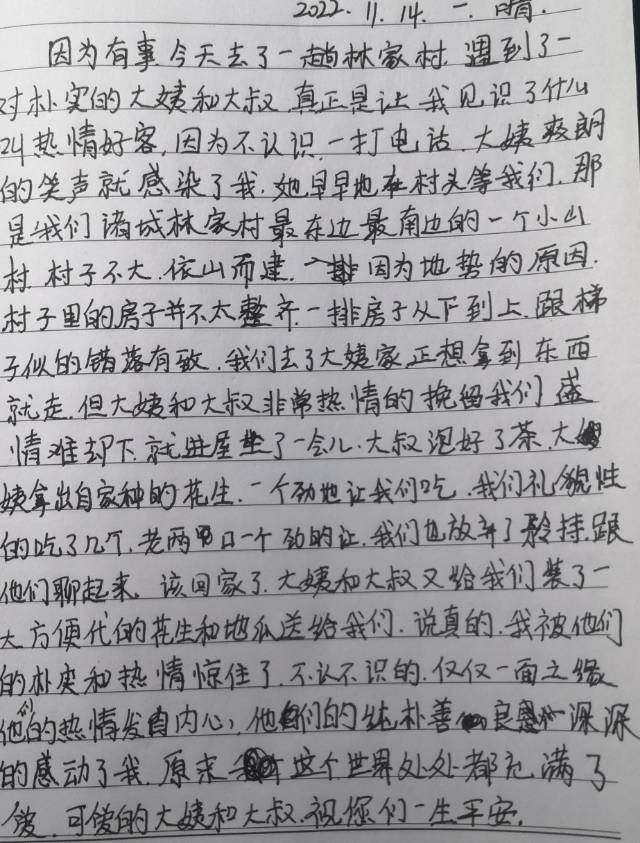 2022.11.14.一.晴.
因为有事,今天去了一趟林家村,遇到了一
对朴实的大姨和大叔,真正是让我见识了什么
叫热情好客,因为不认识,一打电话,大姨爽朗
的笑声就感染了我.她早早地在村头等我们,那
是我们诸城林家村最东边最南边的一个小山
村,村子不大,依山而建,因为地势的原因.
村子里的房子并不太整齐.一排房子从下到上,跟梯
子似的错落有致,我们去了大姨家,正想拿到东西
就走,但大姨和大叔非常热情的挽留我们,盛
情难却下,就进屋坐了一会儿.大叔泡好了茶,大
姨拿出自家种的花生,一个劲地让我们吃,我们礼貌性
的吃了几个,老两口一个劲的让,我们也放弃了矜持,跟
他们聊起来,该回家了,大姨和大叔又给我们装了一
大方便代的花生和地瓜送给我们.说真的,我被他们
的朴实和热情惊住了,不认不识的,仅仅一面之缘
他们的热情发自内心,他们的纯朴善良深深
的感动了我,原来这个世界处处都充满了
爱,可爱的大姨和大叔,祝您们一生平安.